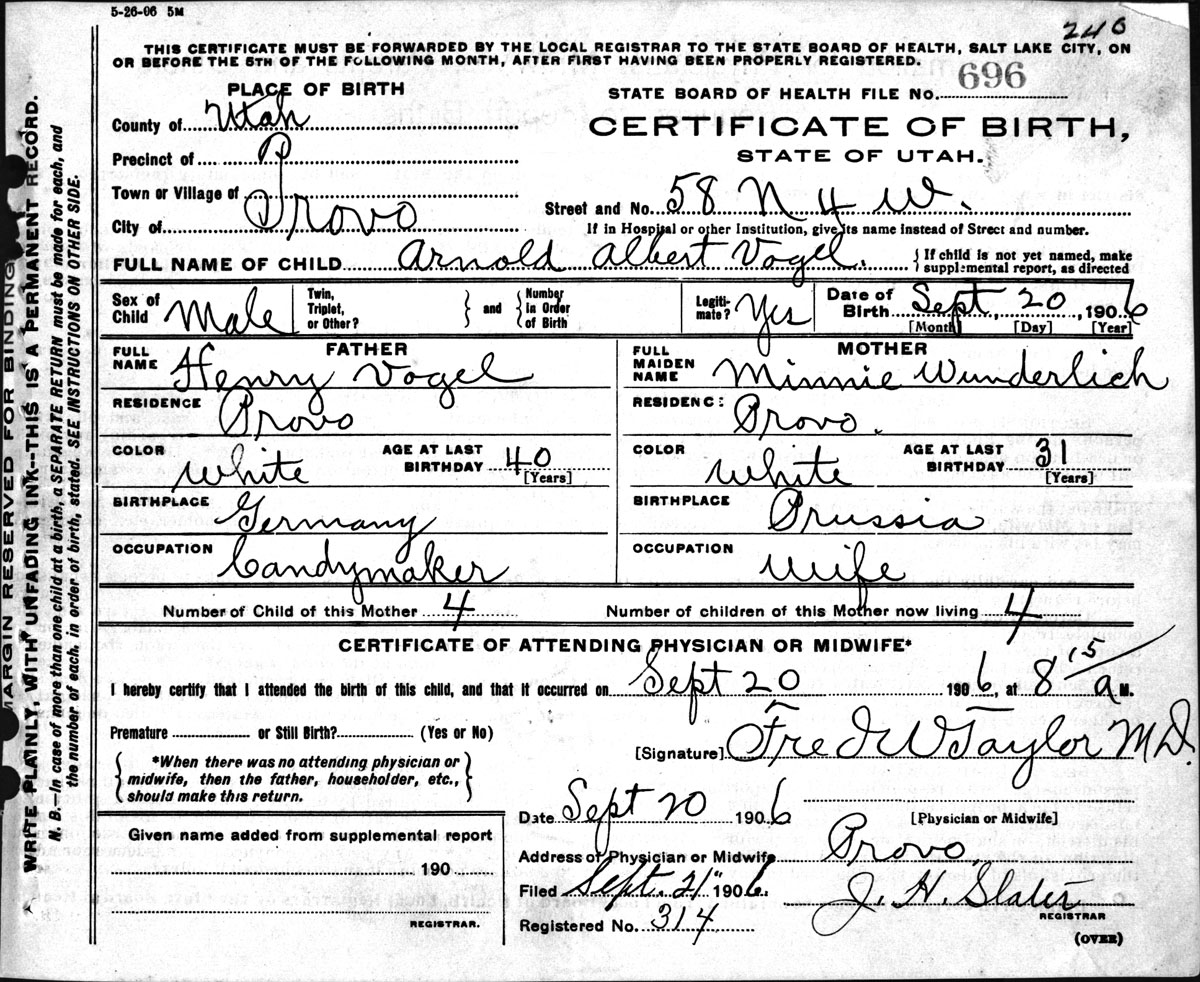 5-26-06 5M
246
THIS CERTIFICATE MUST BE FORWARDED BY THE LOCAL REGISTRAR TO THE STATE BOARD OF HEALTH, SALT LAKE CITY, ON
OR BEFORE THE 5TH OF THE FOLLOWING MONTH, AFTER FIRST HAVING BEEN PROPERLY REGISTERED.
PLACE OF BIRTH
STATE BOARD OF HEALTH FILE No. 696
County of Utah
CERTIFICATE OF BIRTH,
Precinct of P
STATE OF UTAH.
Town or Village of
Street and No. 58 N 4 W.
City of Provo
If in Hospital or other Institution, give its name instead of Street and number.
FULL NAME OF CHILD Arnold Albert Vogel. { If child is not yet named, make
supplemental report, as directed
Sex of Child Male
Twin, Triplet, or Other? } and { Number in Order of Birth
Legiti-mate? Yes
Date of Birth Sept, 20, 1906
[Month] [Day] [Year]
FATHER
FULL NAME Henry Vogel
RESIDENCE Provo
COLOR White AGE AT LAST BIRTHDAY 40 [Years]
BIRTHPLACE Germany
OCCUPATION Candymaker
MOTHER
FULL MAIDEN NAME Minnie Wunderlich
RESIDENC: Provo.
COLOR White AGE AT LAST BIRTHDAY 31 [Years]
BIRTHPLACE Prussia
OCCUPATION Wife
Number of Child of this Mother 4 Number of children of this Mother now living 4
CERTIFICATE OF ATTENDING PHYSICIAN OR MIDWIFE*
I hereby certify that I attended the birth of this child, and that it occurred on Sept 20 1906, at 8 15 a M.
Premature or Still Birth? (Yes or No)
[Signature] Fred W Taylor M.D.
{ *When there was no attending physician or
midwife, then the father, householder, etc.,
should make this return. }
Date Sept 20 1906
[Physician or Midwife]
Given name added from supplemental report
190
REGISTRAR.
Address of Physician or Midwife Provo.
Filed Sept. 21" 1906. J. H. Slater
REGISTRAR
Registered No. 314
(OVER)
MARGIN RESERVED FOR BINDING
WRITE PLAINLY, WITH UNFADING INK--THIS IS A PERMANENT RECORD.
N. B.—In case of more than one child at a birth, a SEPARATE RETURN must be made for each, and
the number of each, in order of birth, stated. SEE INSTRUCTIONS ON OTHER SIDE.